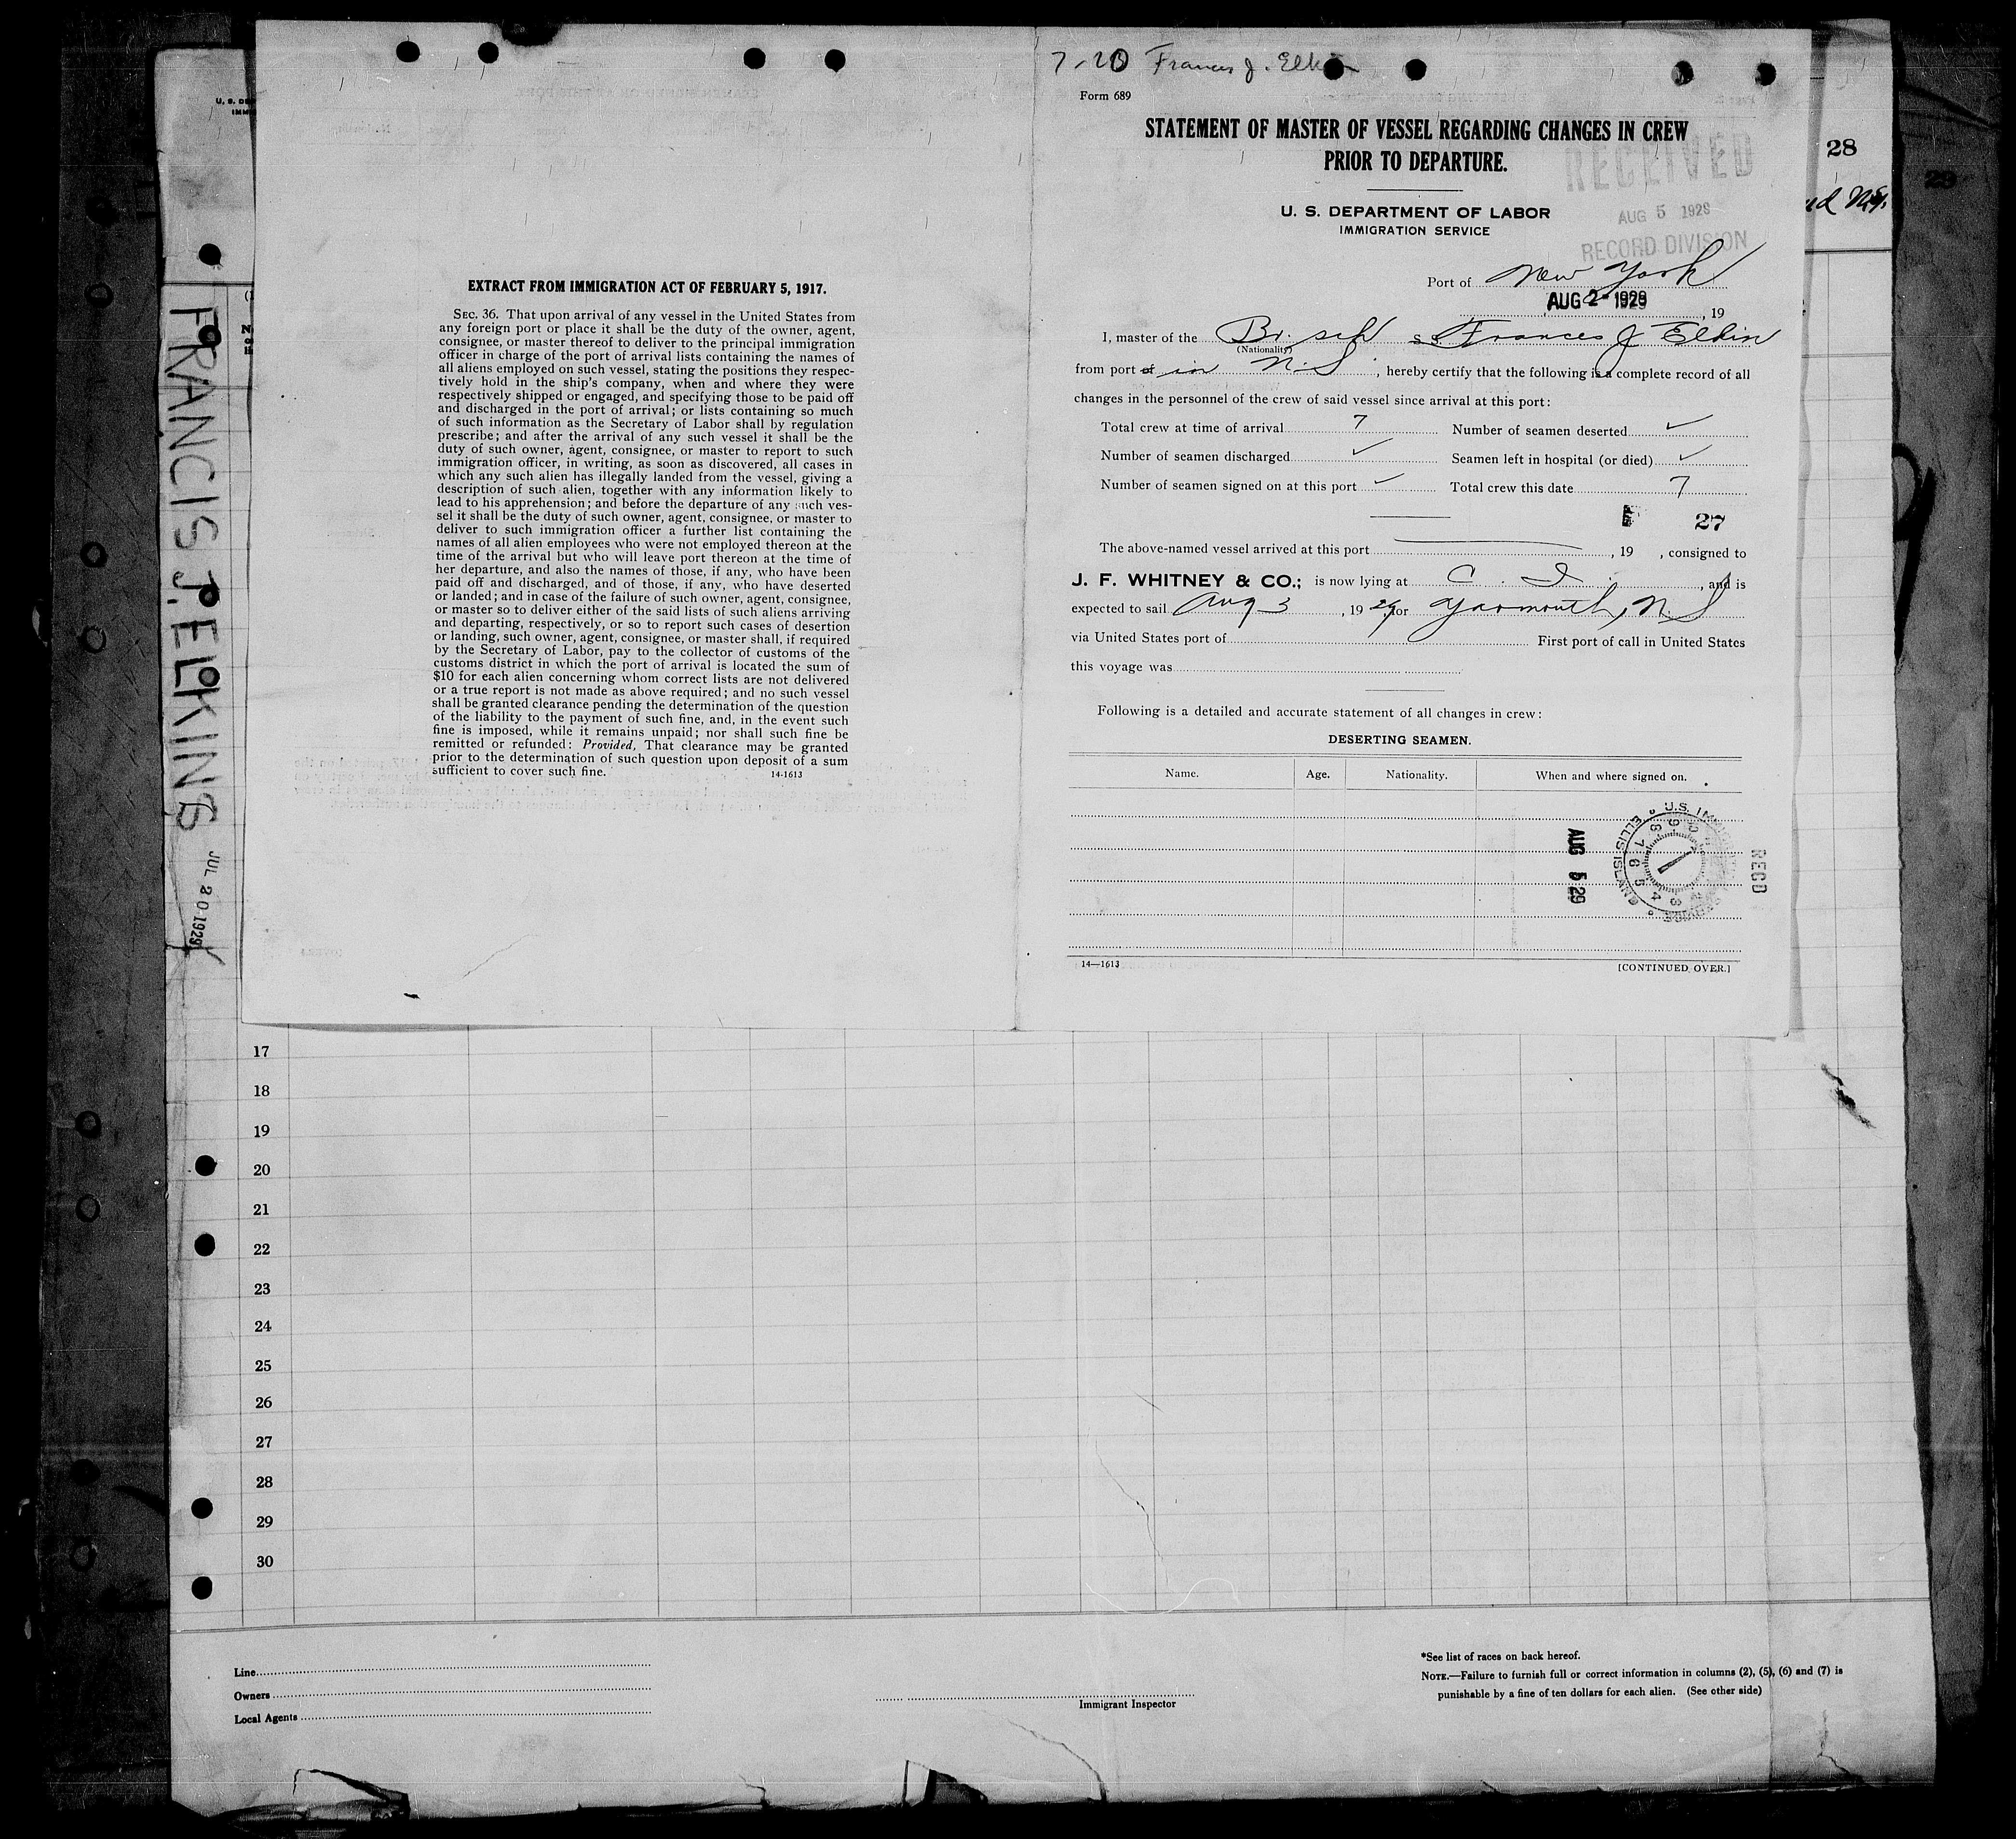 U. S. DE
IMMI
FRANCIS J. ELKINS JUL 20 1929
EXTRACT FROM IMMIGRATION ACT OF FEBRUARY 5, 1917.
SEC. 36. That upon arrival of any vessel in the United States from
any foreign port or place it shall be the duty of the owner, agent,
consignee, or master thereof to deliver to the principal immigration
officer in charge of the port of arrival lists containing the names of
all aliens employed on such vessel, stating the positions they respec-
tively hold in the ship's company, when and where they were
respectively shipped or engaged, and specifying those to be paid off
and discharged in the port of arrival; or lists containing so much
of such information as the Secretary of Labor shall by regulation
prescribe; and after the arrival of any such vessel it shall be the
duty of such owner, agent, consignee, or master to report to such
immigration officer, in writing, as soon as discovered, all cases in
which any such alien has illegally landed from the vessel, giving a
description of such alien, together with any information likely to
lead to his apprehension; and before the departure of any such ves-
sel it shall be the duty of such owner, agent, consignee, or master to
deliver to such immigration officer a further list containing the
names of all alien employees who were not employed thereon at the
time of the arrival but who will leave port thereon at the time of
her departure, and also the names of those, if any, who have been
paid off and discharged, and of those, if any, who have deserted
or landed; and in case of the failure of such owner, agent, consignee,
or master so to deliver either of the said lists of such aliens arriving
and departing, respectively, or so to report such cases of desertion
or landing, such owner, agent, consignee, or master shall, if required
by the Secretary of Labor, pay to the collector of customs of the
customs district in which the port of arrival is located the sum of
$10 for each alien concerning whom correct lists are not delivered
or a true report is not made as above required; and no such vessel
shall be granted clearance pending the determination of the question
of the liability to the payment of such fine, and, in the event such
fine is imposed, while it remains unpaid; nor shall such fine be
remitted or refunded: Provided, That clearance may be granted
prior to the determination of such question upon deposit of a sum
sufficient to cover such fine. 14-1613
7-20 Frances J. Elkin
Form 689
STATEMENT OF MASTER OF VESSEL REGARDING CHANGES IN CREW
PRIOR TO DEPARTURE.
RECEIVED
AUG 5 1929
RECORD DIVISION
U. S. DEPARTMENT OF LABOR
IMMIGRATION SERVICE
Port of New York
AUG 2 - 1929, 19
I, master of the Br. sch S.S. Frances J Elkin
(Nationality)
from port of in N.S., hereby certify that the following is a complete record of all
changes in the personnel of the crew of said vessel since arrival at this port:
Total crew at time of arrival 7 Number of seamen deserted ✓
Number of seamen discharged ✓ Seamen left in hospital (or died) ✓
Number of seamen signed on at this port ✓ Total crew this date 7
27
The above-named vessel arrived at this port, 19 , consigned to
J. F. WHITNEY & CO.; is now lying at C. I., and is
expected to sail Aug 3, 1929, for Yarmouth, N.S
via United States port of First port of call in United States
this voyage was
Following is a detailed and accurate statement of all changes in crew:
DESERTING SEAMEN.
Name. Age. Nationality. When and where signed on.
AUG 5 29
U.S. IMMIGRATION SERVICE ELLIS ISLAND
RECD
14—1613 [CONTINUED OVER.]
28
29
17
18
19
20
21
22
23
24
25
26
27
28
29
30
Line
Owners
Local Agents
Immigrant Inspector
*See list of races on back hereof.
NOTE.—Failure to furnish full or correct information in columns (2), (5), (6) and (7) is
punishable by a fine of ten dollars for each alien. (See other side)